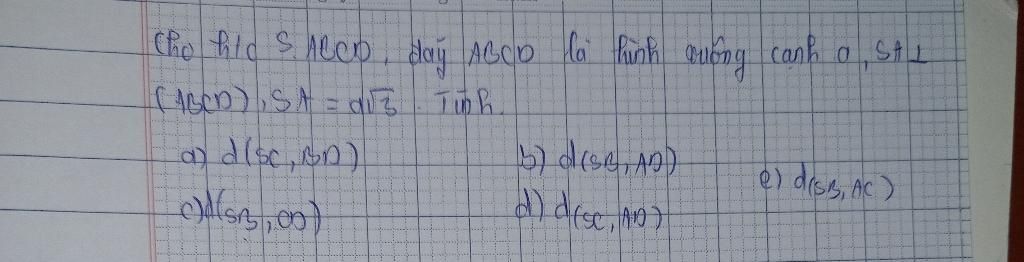 Cho h/c S.ABCD, đáy ABCD là hình vuông cạnh a, SA⊥
(ABCD), SA = a√3. Tính.
a) d(SC, BD) b) d(SB, AD) e) d(SB, AC)
c) d(SB, CD) d) d(SC, AD)